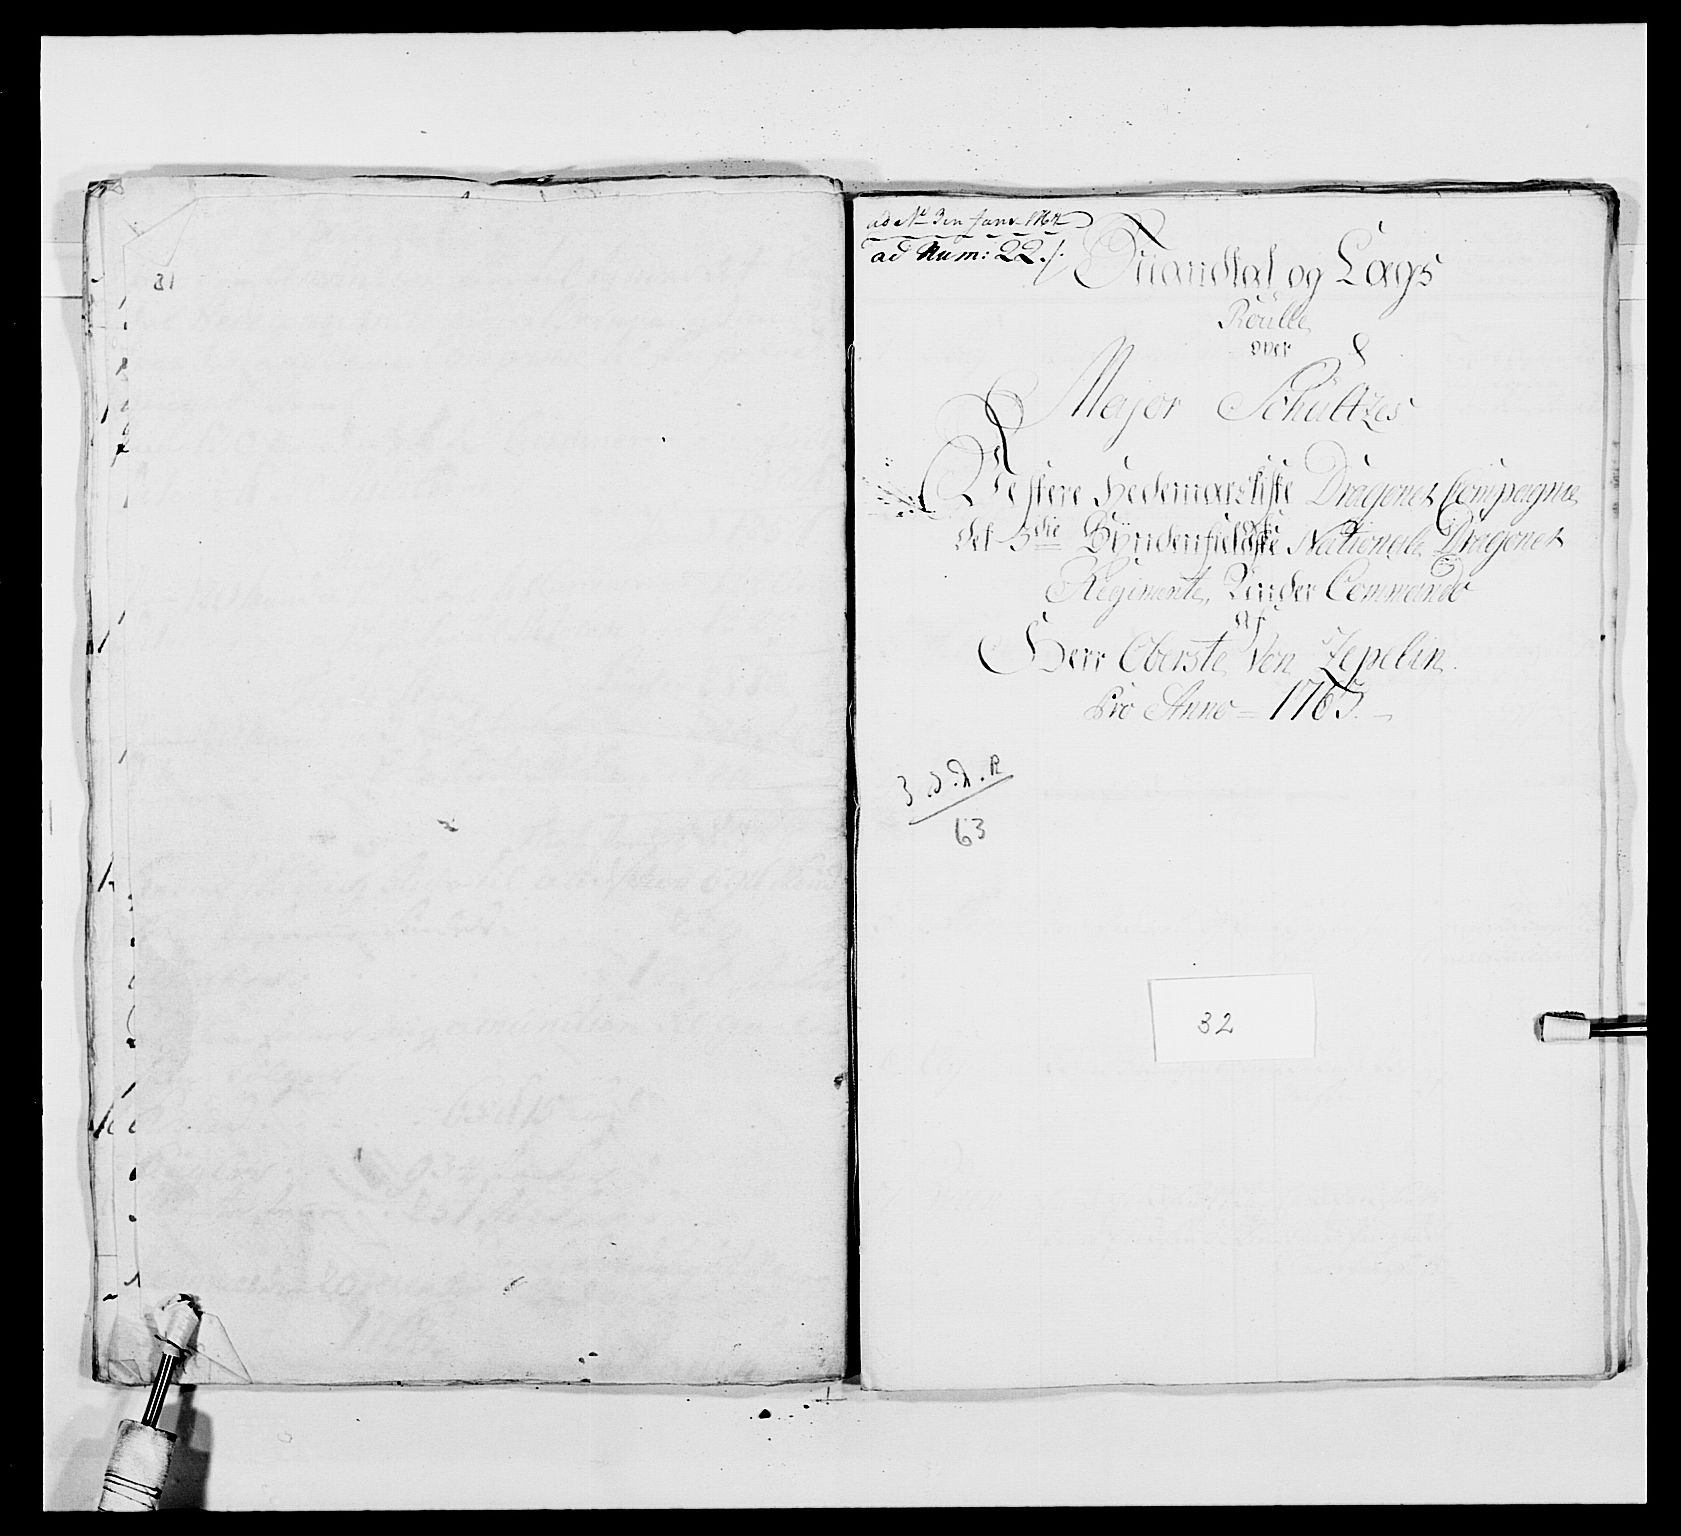 31
ad No 3 in Janr 1764
ad Num: 22./.
Quandtal og Lægs
Roulle
over
Major Schültzes
Vestere Hedemarkske Dragoner Compagnie
det 3die Syndenfieldske Nationale Dragoner
Regimente, Under Commando
af
Herr Oberste Von Zepelin
Pro Anno = 1763. —
3 .d.D.R
63
32